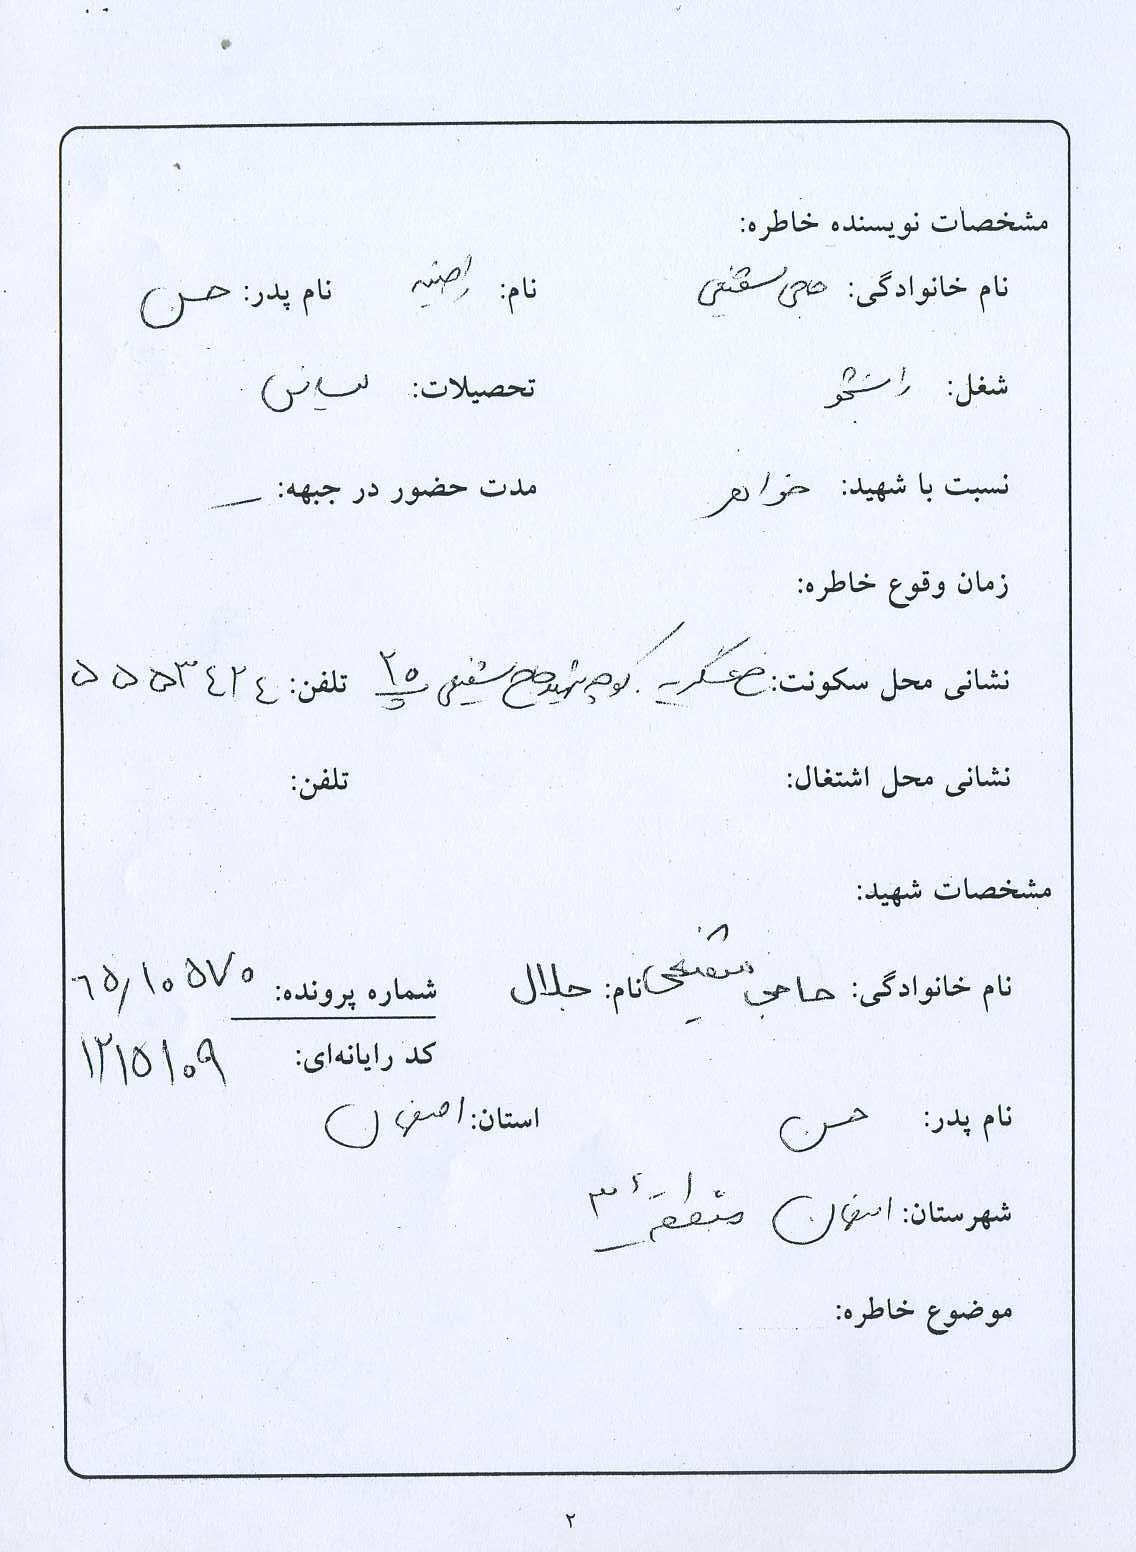 مشخصات نویسنده خاطره:
نام خانوادگی: حاجی شفیعی نام: راضیه نام پدر: حسن
شغل: دانشجو تحصیلات: لیسانس
نسبت با شهید: خواهر مدت حضور در جبهه: ــ
زمان وقوع خاطره:
نشانی محل سکونت: خ عسگریه کوچه شهید حاج شفیعی پ ۲۵ تلفن: ۵۵۵۳۴۲۴
نشانی محل اشتغال: تلفن:
مشخصات شهید:
نام خانوادگی: حاجی شفیعی نام: جلال شماره پرونده: ۶۵/۱۰۵۷۰
کد رایانه‌ای: ۱۲۱۵۱۰۹
نام پدر: حسن استان: اصفهان
شهرستان: اصفهان منطقهٔ ۳
موضوع خاطره:
۲